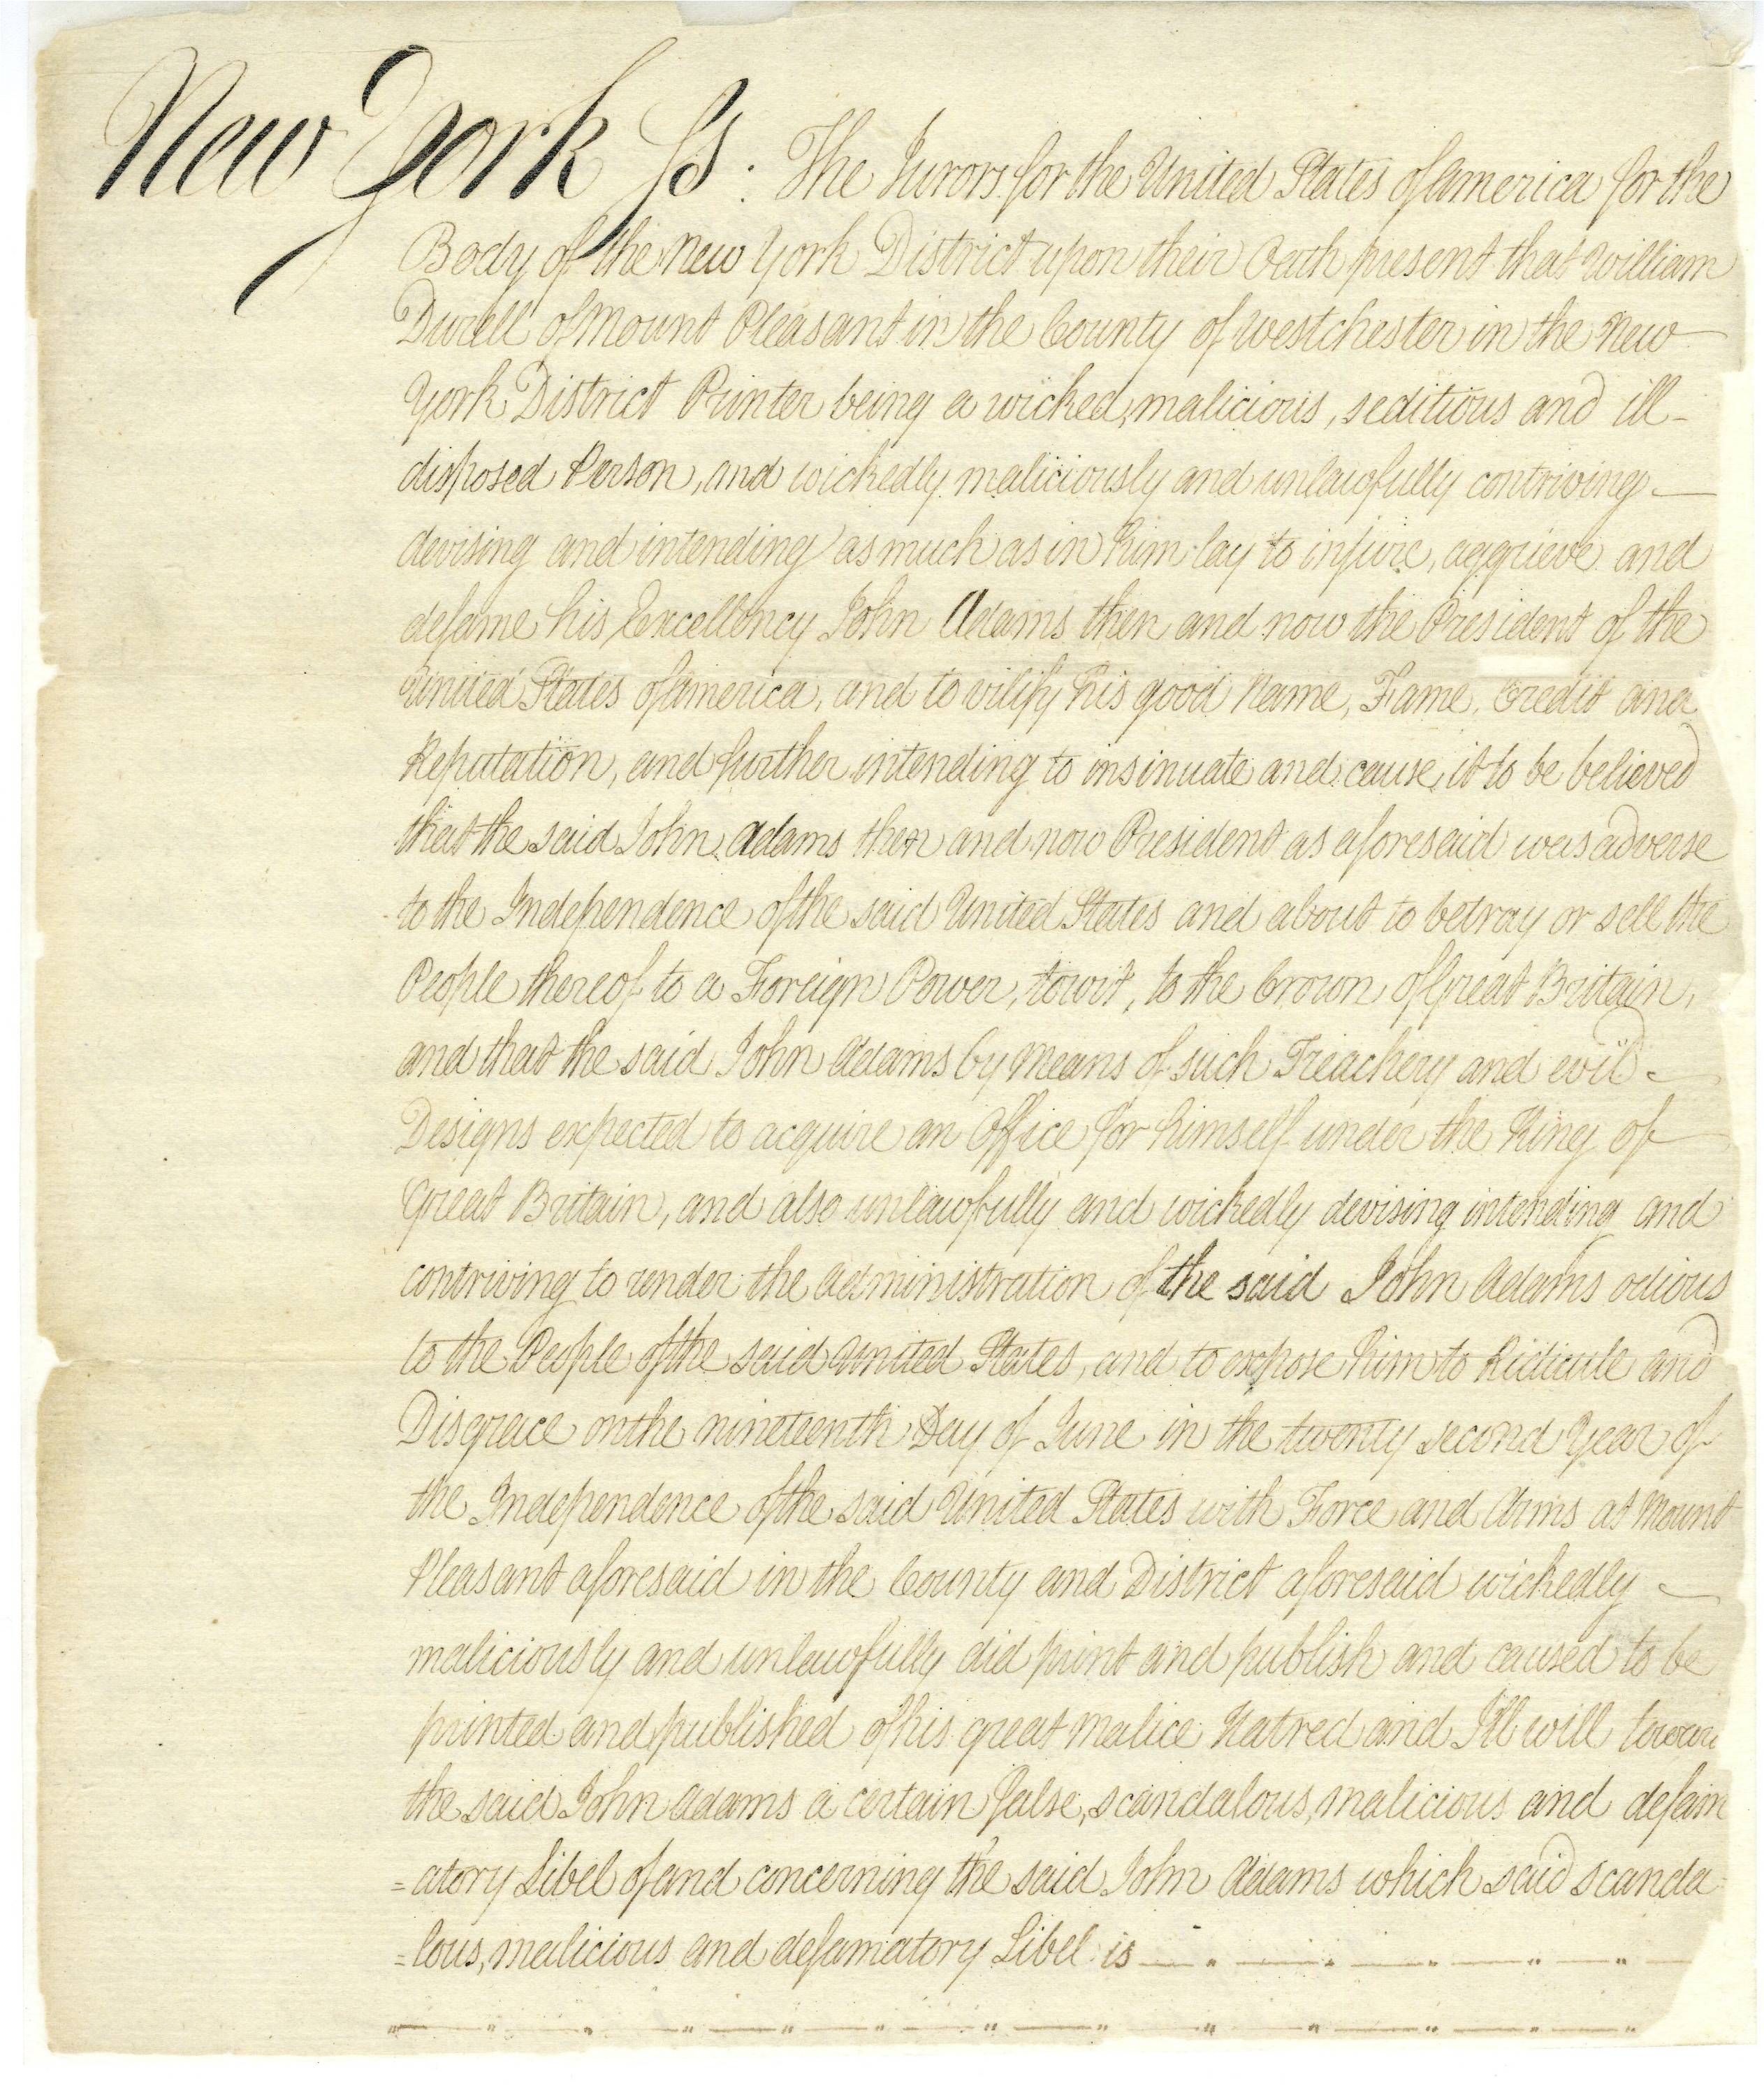 New York Ss. The Jurors for the United States of America for the
Body of the New York District upon their Oath present that William
Durell of Mount Pleasant in the County of Westchester in the New
York District Printer being a wicked, malicious, seditious and ill-
disposed Person, and wickedly maliciously and unlawfully contriving —
devising and intending as much as in him lay to injure, aggrieve and
defame his Excellency John Adams then and now the President of the
United States of America, and to vilify his good Name, Fame, Credit and
Reputation, and further intending to insinuate and cause it to be believed
that the said John Adams then and now President as aforesaid was adverse
to the Independence of the said United States and about to betray or sell the
People thereof to a Foreign Power, towit, to the Crown of Great Britain,
and that the said John Adams by Means of such Treachery and evil —
Designs expected to acquire an Office for himself under the King of
Great Britain, and also unlawfully and wickedly devising intending and
contriving to render the Administration of the said John Adams odious
to the People of the said United States, and to expose him to Ridicule and
Disgrace on the nineteenth Day of June in the twenty second Year of
the Independence of the said United States with Force and Arms at Mount
Pleasant aforesaid in the County and District aforesaid wickedly —
maliciously and unlawfully did print and publish and caused to be
printed and published of his great Malice Hatred and Ill will towar
the said John Adams a certain false, scandalous, malicious and defam
=atory Libel of and concerning the said John Adams which said scanda=
=lous, malicious and defamatory Libel is — " — " — " — " — " —